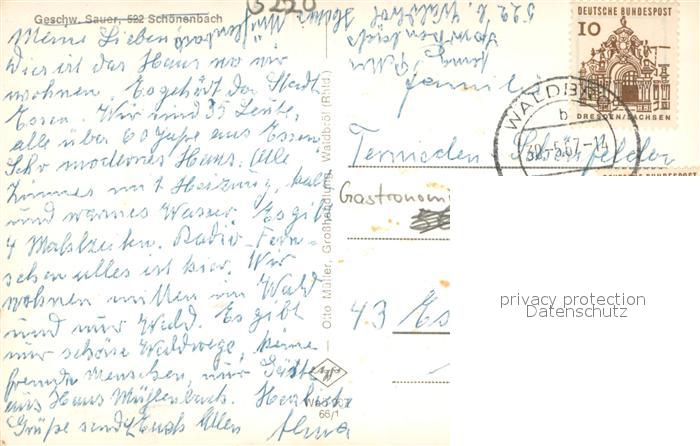 Geschw. Sauer, 522 Schönenbach
5220
Meine Lieben!
Dies ist das Haus wo wir
wohnen. Es gehört der Stadt
Essen. Wir sind 35 Leute,
alle über 60 Jahre aus Essen
Sehr modernes Haus. Alle
Zimmer mit Heizung, kalt
und warmes Wasser. Es gibt
4 Mahlzeiten. Radio Fern-
sehen alles ist hier. Wir
wohnen mitten im Wald
und nur Wald. Es gibt
nur schöne Waldwege, keine
fremde Menschen, nur Gäste
aus Haus Mühlenbach. Herzliche
Grüße sendet Euch Allen
Otto Müller, Großhandlung, Waldbröl (Rhld.)
66/1
522 Waldbröl
Familie
Gastronom
43 Es
DEUTSCHE BUNDESPOST
10
DRESDEN/SACHSEN
WALDB
b
-5.67-14
BUNDESPOST
privacy protection
Datenschutz